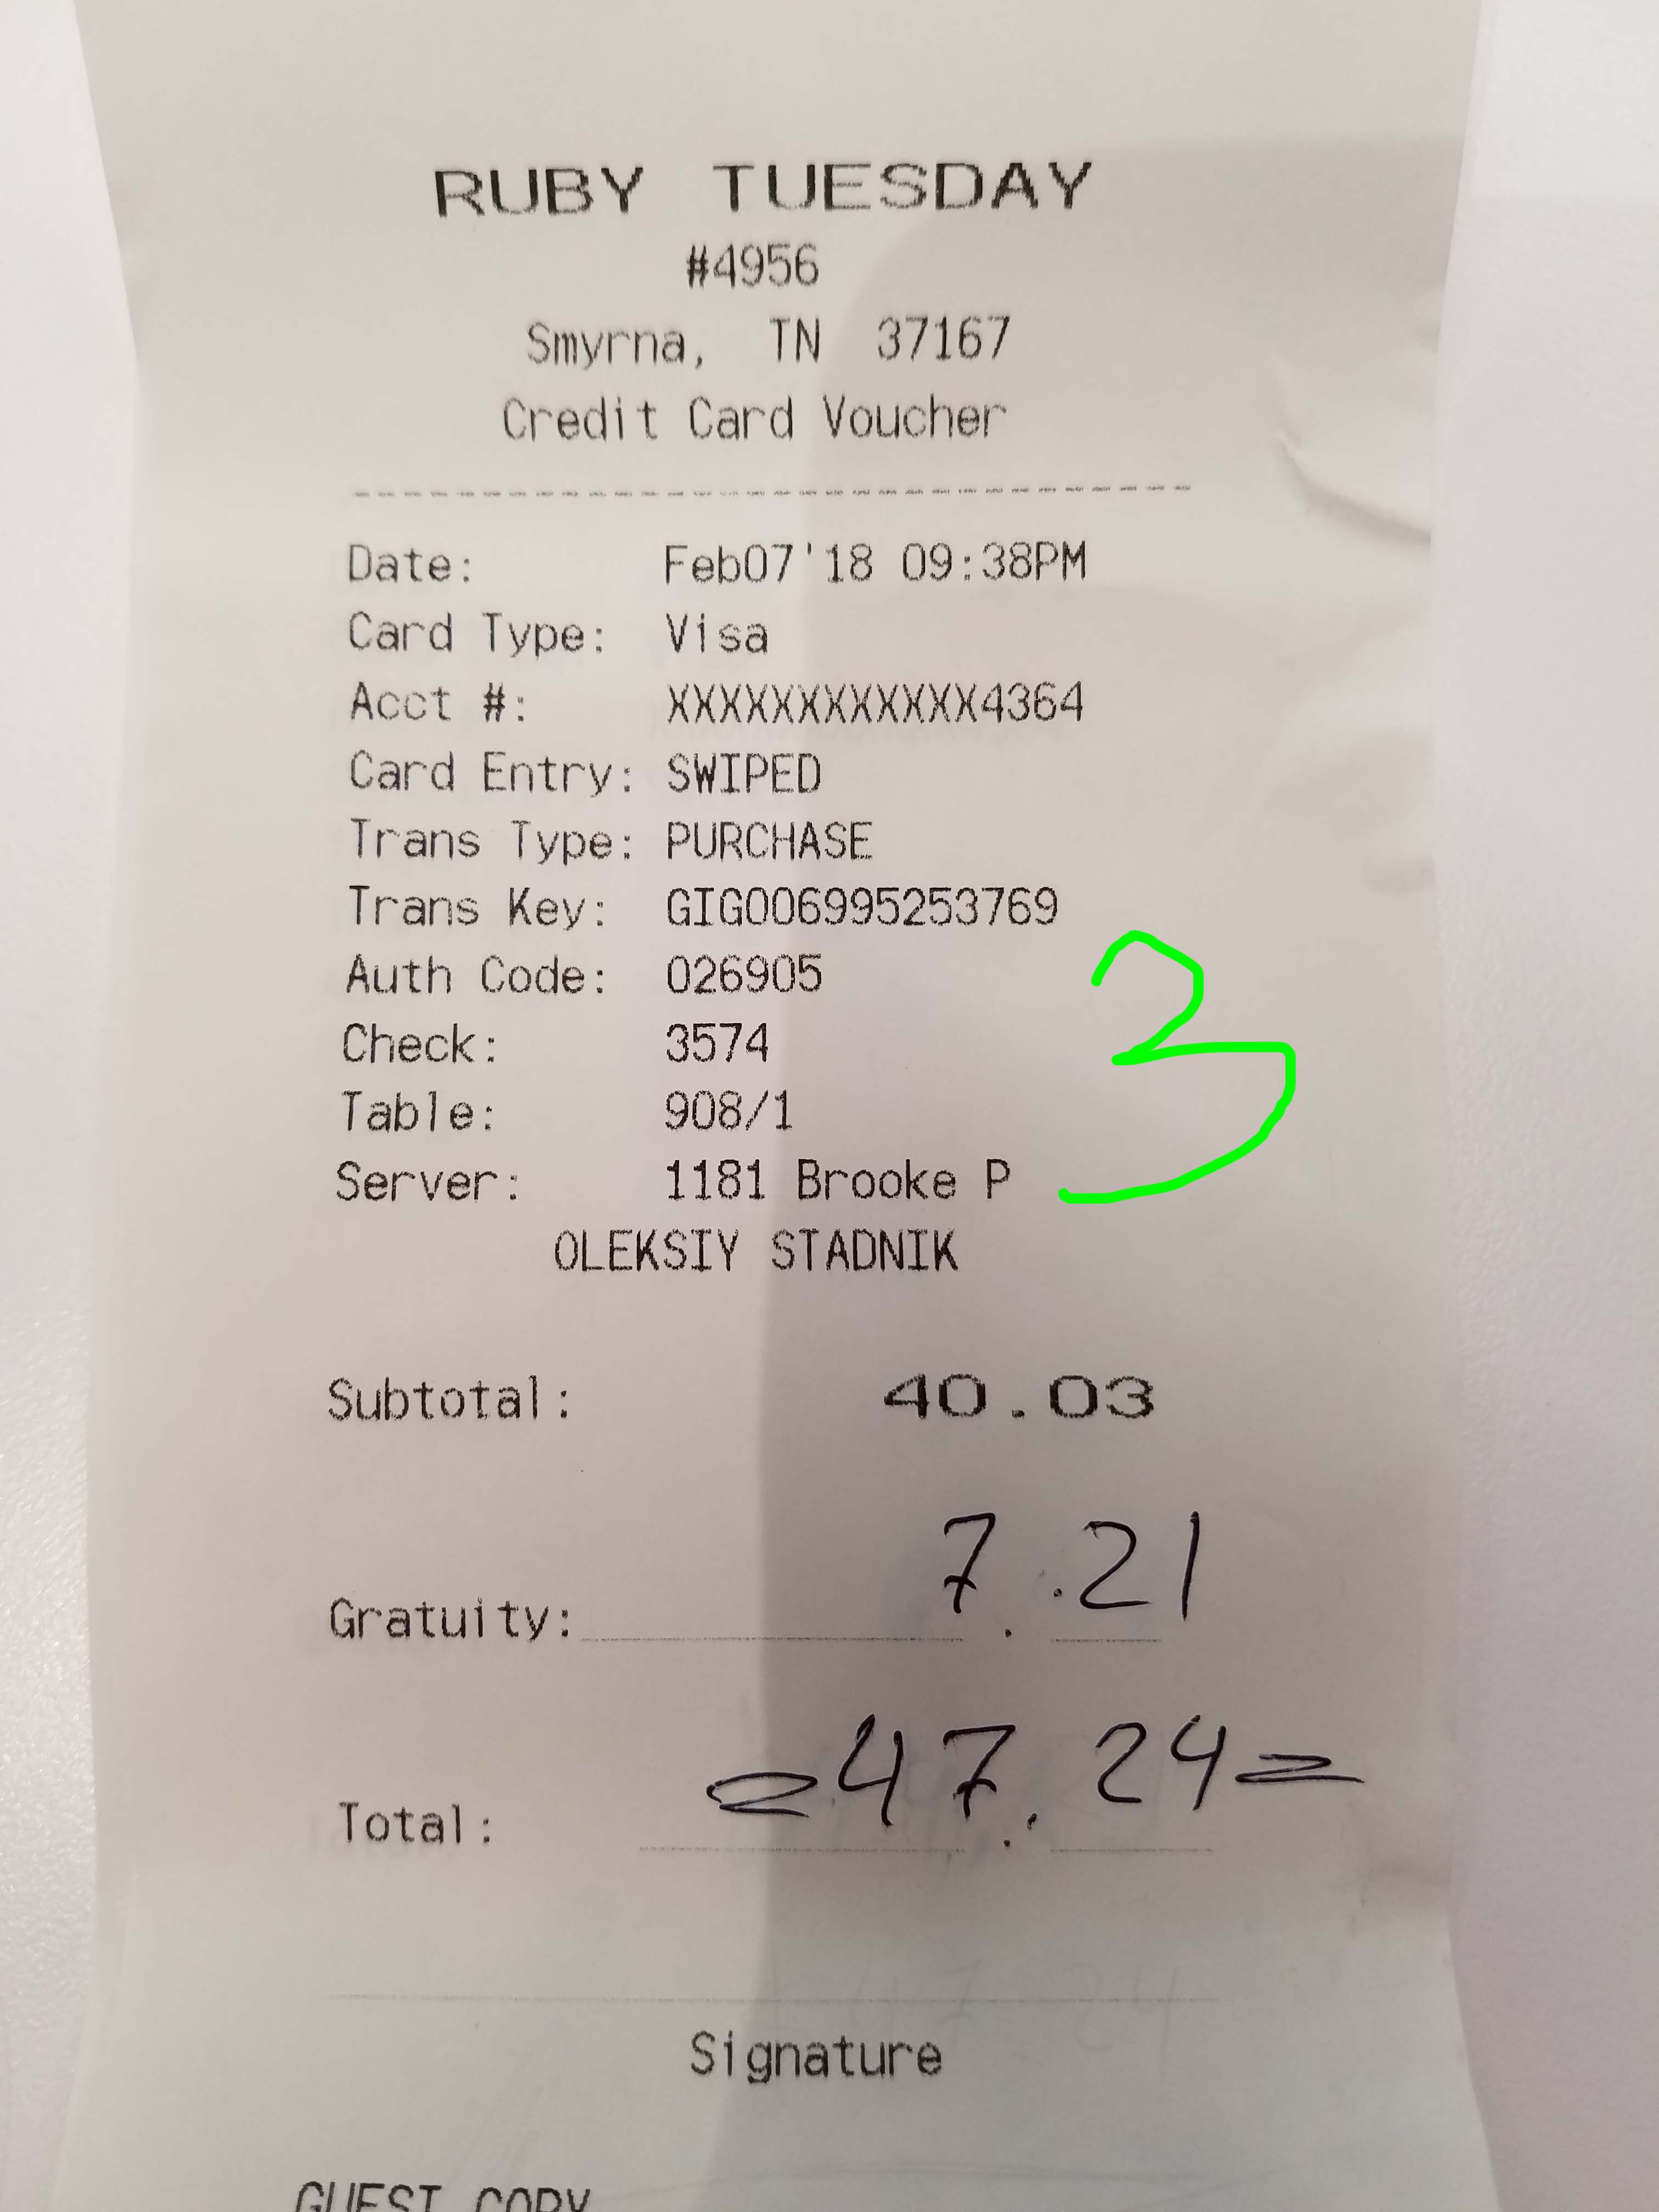 RUBY TUESDAY
#4956
Smyrna, TN 37167
Credit Card Voucher
Date: Feb07'18 09:38PM
Card Type: Visa
Acct #: XXXXXXXXXXXX4364
Card Entry: SWIPED
Trans Type: PURCHASE
Trans Key: GIG006995253769
Auth Code: 026905
3
Check: 3574
Table: 908/1
Server: 1181 Brooke P
OLEKSIY STADNIK
Subtotal: 40.03
Gratuity: 7.21
Total: =47.24=
Signature
GUEST COPY